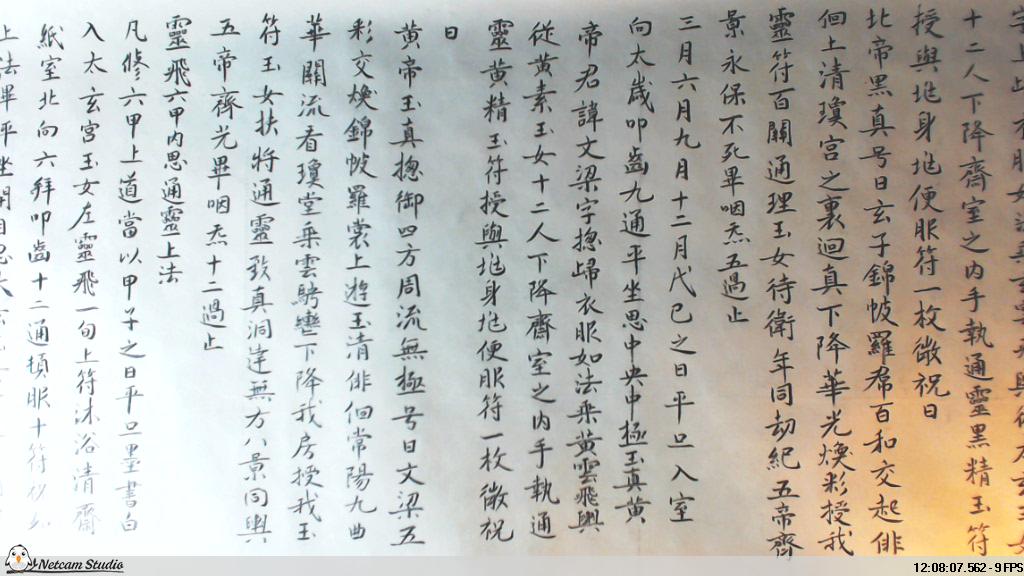 十二人下降齋室之内手執通靈黑精玉符
授與地身地便服符一枚微祝曰
北帝黑真号曰玄子錦帔羅帬百和交起俳
佪上清瓊宮之裏迴真下降華光煥彩授我
靈符百關通理玉女侍衛年同劫紀五帝齊
景永保不死畢咽炁五過止
三月六月九月十二月戊巳之日平旦入室
向太歲叩齒九通平坐思中央中極玉真黄
帝君諱文梁字摠歸衣服如法乘黄雲飛輿
從黄素玉女十二人下降齋室之内手執通
靈黄精玉符授與地身地便服符一枚微祝
曰
黄帝玉真摠御四方周流無極号曰文梁五
彩交煥錦帔羅裳上遊玉清俳佪常陽九曲
華關流看瓊堂乘雲騁轡下降我房授我玉
符玉女扶將通靈致真洞達無方八景同輿
五帝齊光畢咽炁十二過止
靈飛六甲内思通靈上法
凡修六甲上道當以甲子之日平旦墨書白
入太玄宮玉女左靈飛一旬上符沐浴清齋
紙室北向六拜叩齒十二通頓服十符
上法畢平坐閉目思太玄
Netcam Studio
12:08:07.562 - 9 FPS